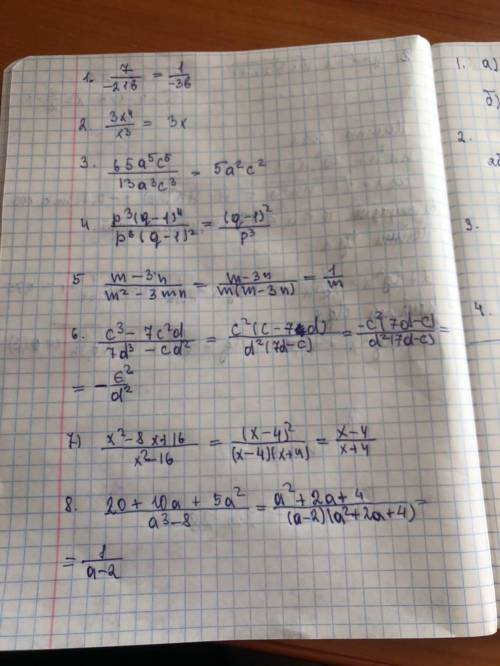 1. 7/-21b = 1/-3b
2. 3x⁴/x³ = 3x
3. 65a⁵c⁵/13a³c³ = 5a²c²
4. p³(q-1)⁴/p⁶(q-1)² = (q-1)²/p³
5 m-3n/m²-3mn = m-3n/m(m-3n) = 1/m
6. c³-7c²d/7d³-cd² = c²(c-7d)/d²(7d-c) = -c²(7d-c)/d²(7d-c) =
= -c²/d²
7) x²-8x+16/x²-16 = (x-4)²/(x-4)(x+4) = x-4/x+4
8. 20+10a+5a²/a³-8 = a²+2a+4/(a-2)(a²+2a+4) =
= 1/a-2
1. а)
б)
2.
3.
4.